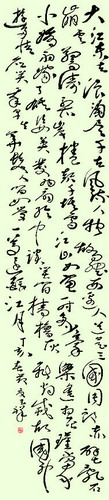 大江东去浪淘尽千古风流人物故垒西边人道是三国周郎赤壁乱石
崩云惊涛裂岸卷起千堆雪江山如画一时多少豪杰遥想公瑾当年
小乔初嫁了雄姿英发羽扇纶巾谈笑间樯橹灰飞烟灭故国神
遊多情应笑我早生华发人间如梦一尊还酹江月 丁亥